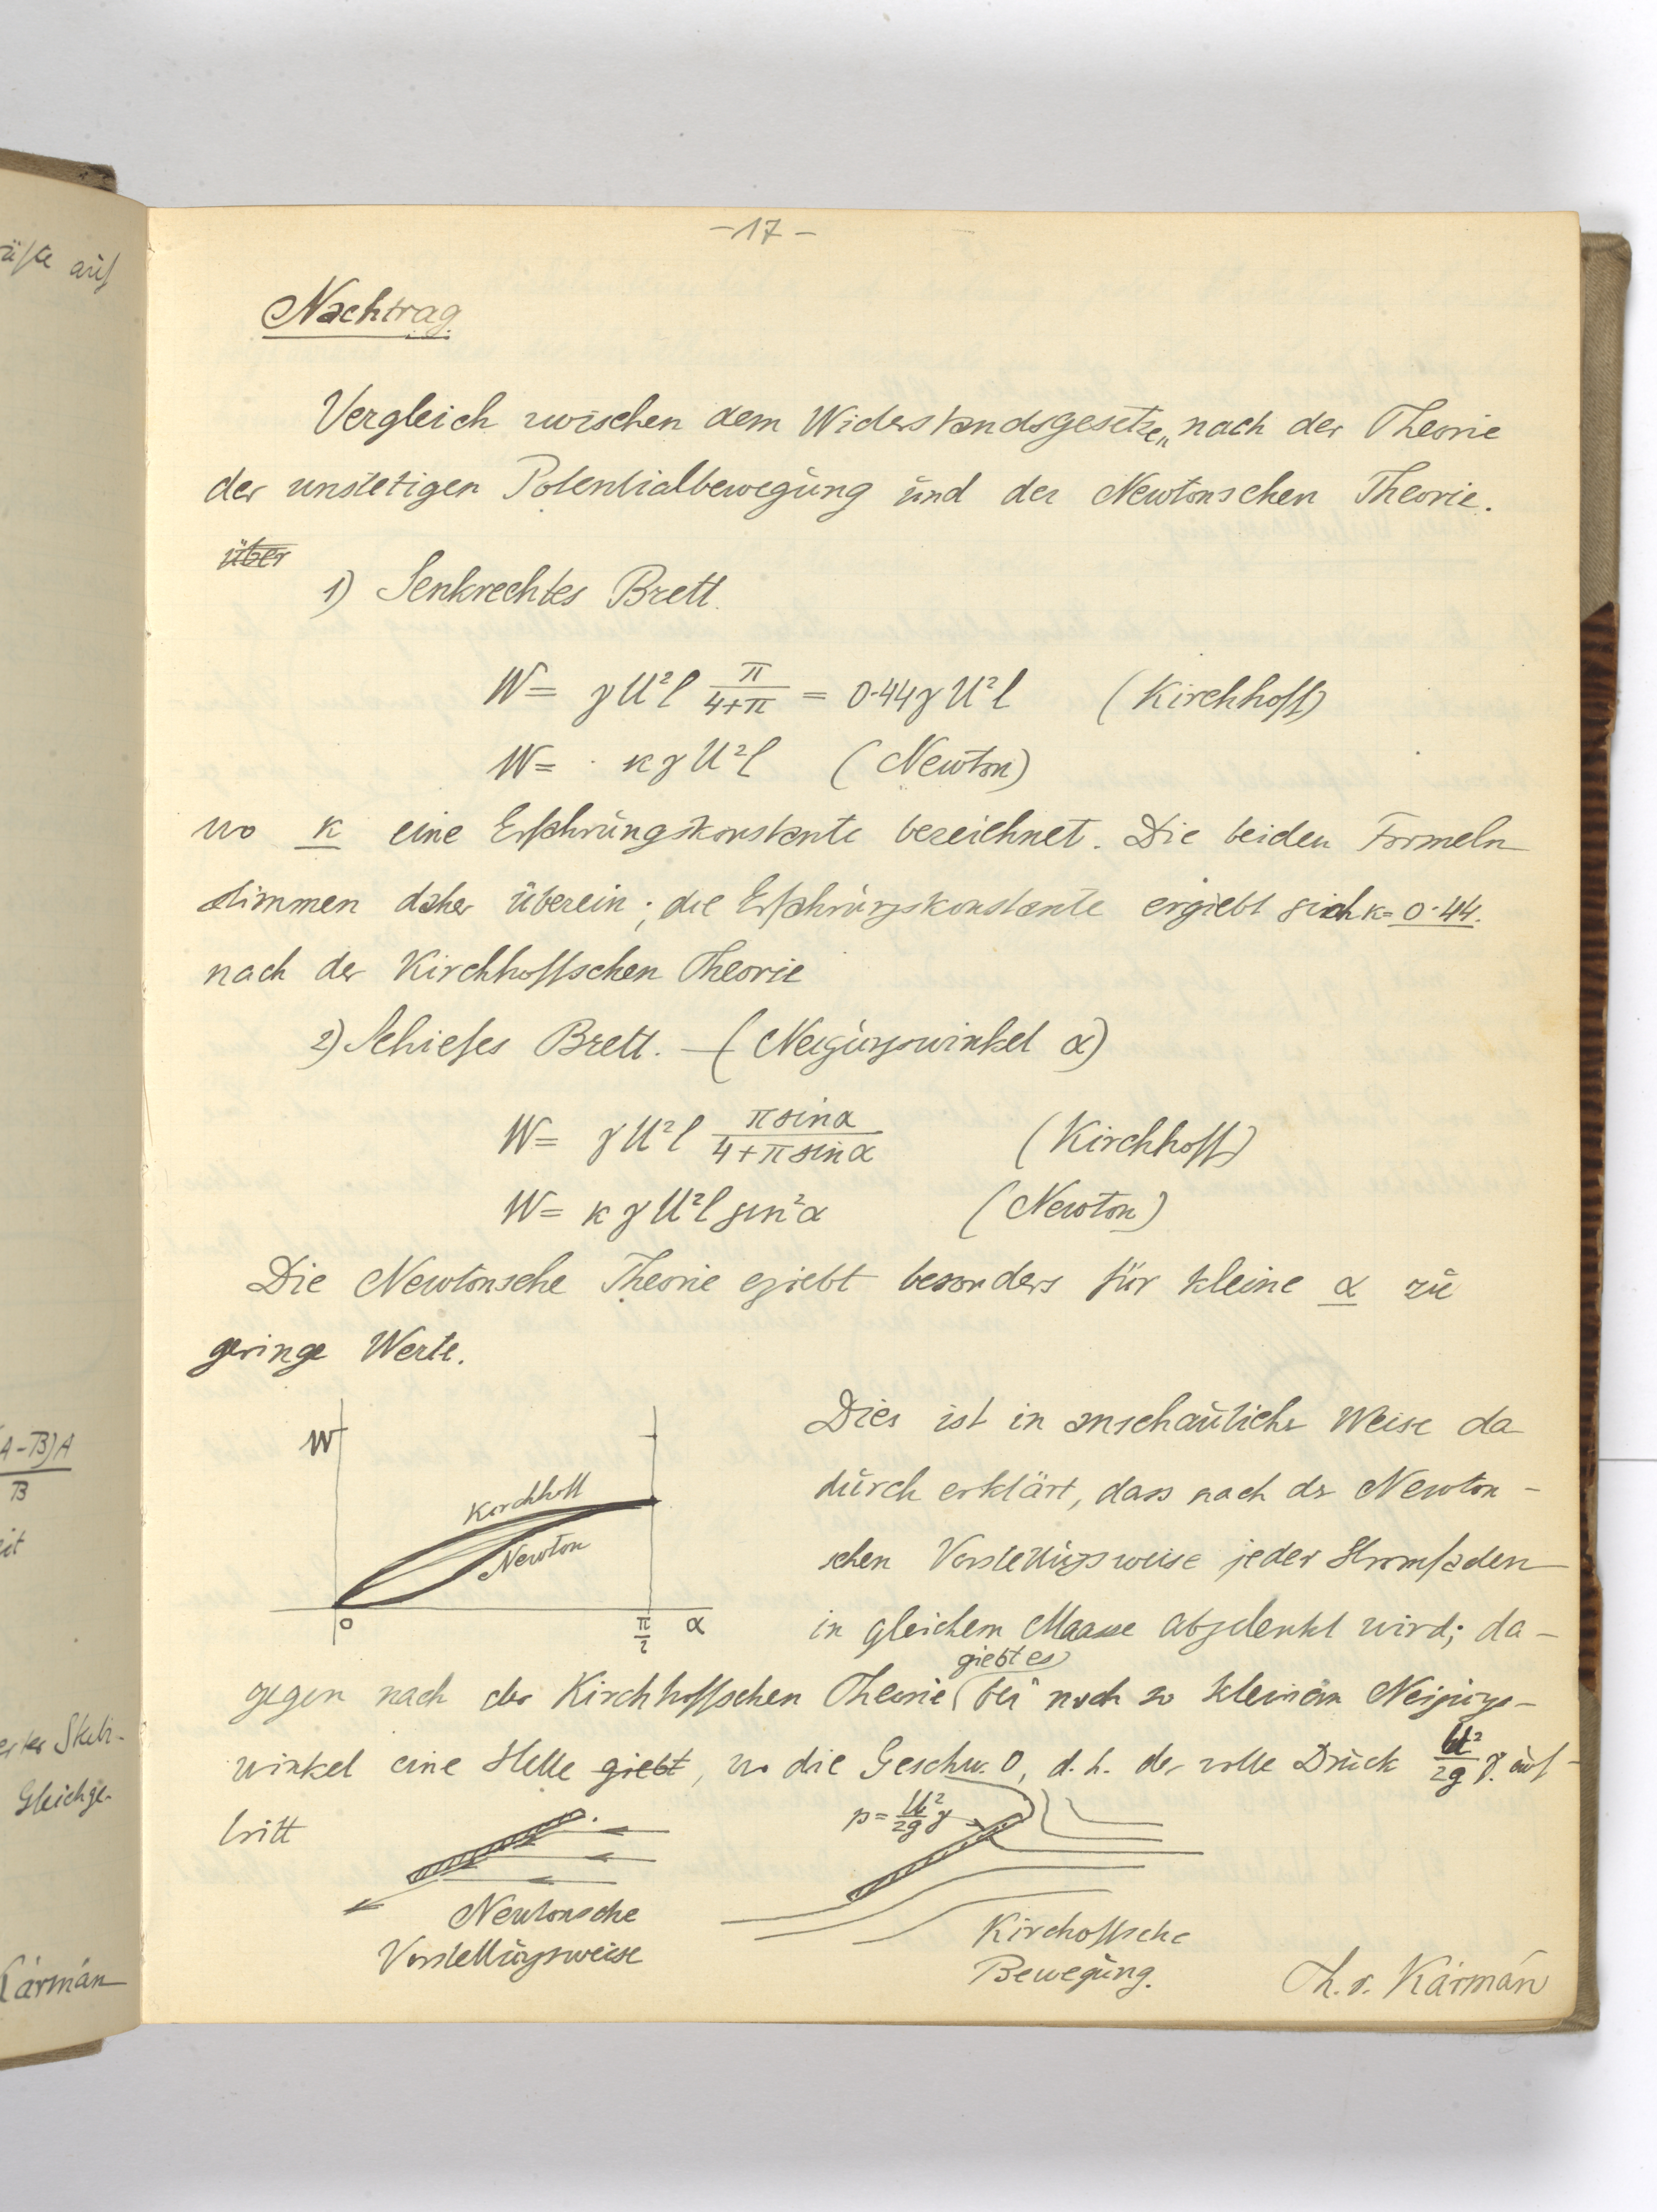 üfte auf
(A-B)A
B
eit
erter Skeli-
Gleichge-
Kármán
-17-
Nachtrag
Vergleich zwischen dem Widerstandsgesetze„ nach der Theorie
der unstetigen Potentialbewegung und der Newtonschen Theorie.
über
1) Senkrechtes Brett.
W = γU²l π/(4+π) = 0·44γU²l (Kirchhoff)
W = · κγU²l (Newton)
wo κ eine Erfahrungskonstante bezeichnet. Die beiden Formeln
stimmen daher überein; die Erfahrungskonstante ergiebt sich κ= 0·44.
nach der Kirchhoffschen Theorie
2) Schiefes Brett. — (Neigungswinkel α)
W = γU²l π sinα/(4+π sinα) (Kirchhoff)
W = κγU²l sin²α (Newton)
Die Newtonsche Theorie egiebt besonders für kleine α zu
geringe Werte.
W
Kirchhoff
Newton
0
π/2
α
Dies ist in anschaulicher Weise da
durch erklärt, dass nach der Newton-
schen Vorstellungsweise jeder Stromfaden
in gleichem Maasse abgelenkt wird; da-
giebt es
gegen nach der Kirchhoffschen Theorie bei noch so kleinem Neigungs-
winkel eine Stelle giebt, wo die Geschw. 0, d.h. der volle Druck U²/2g γ. auf-
tritt
p = U²/2g γ
Newtonsche
Vorstellungsweise
Kirchoffsche
Bewegung.
Th. v. Kármán